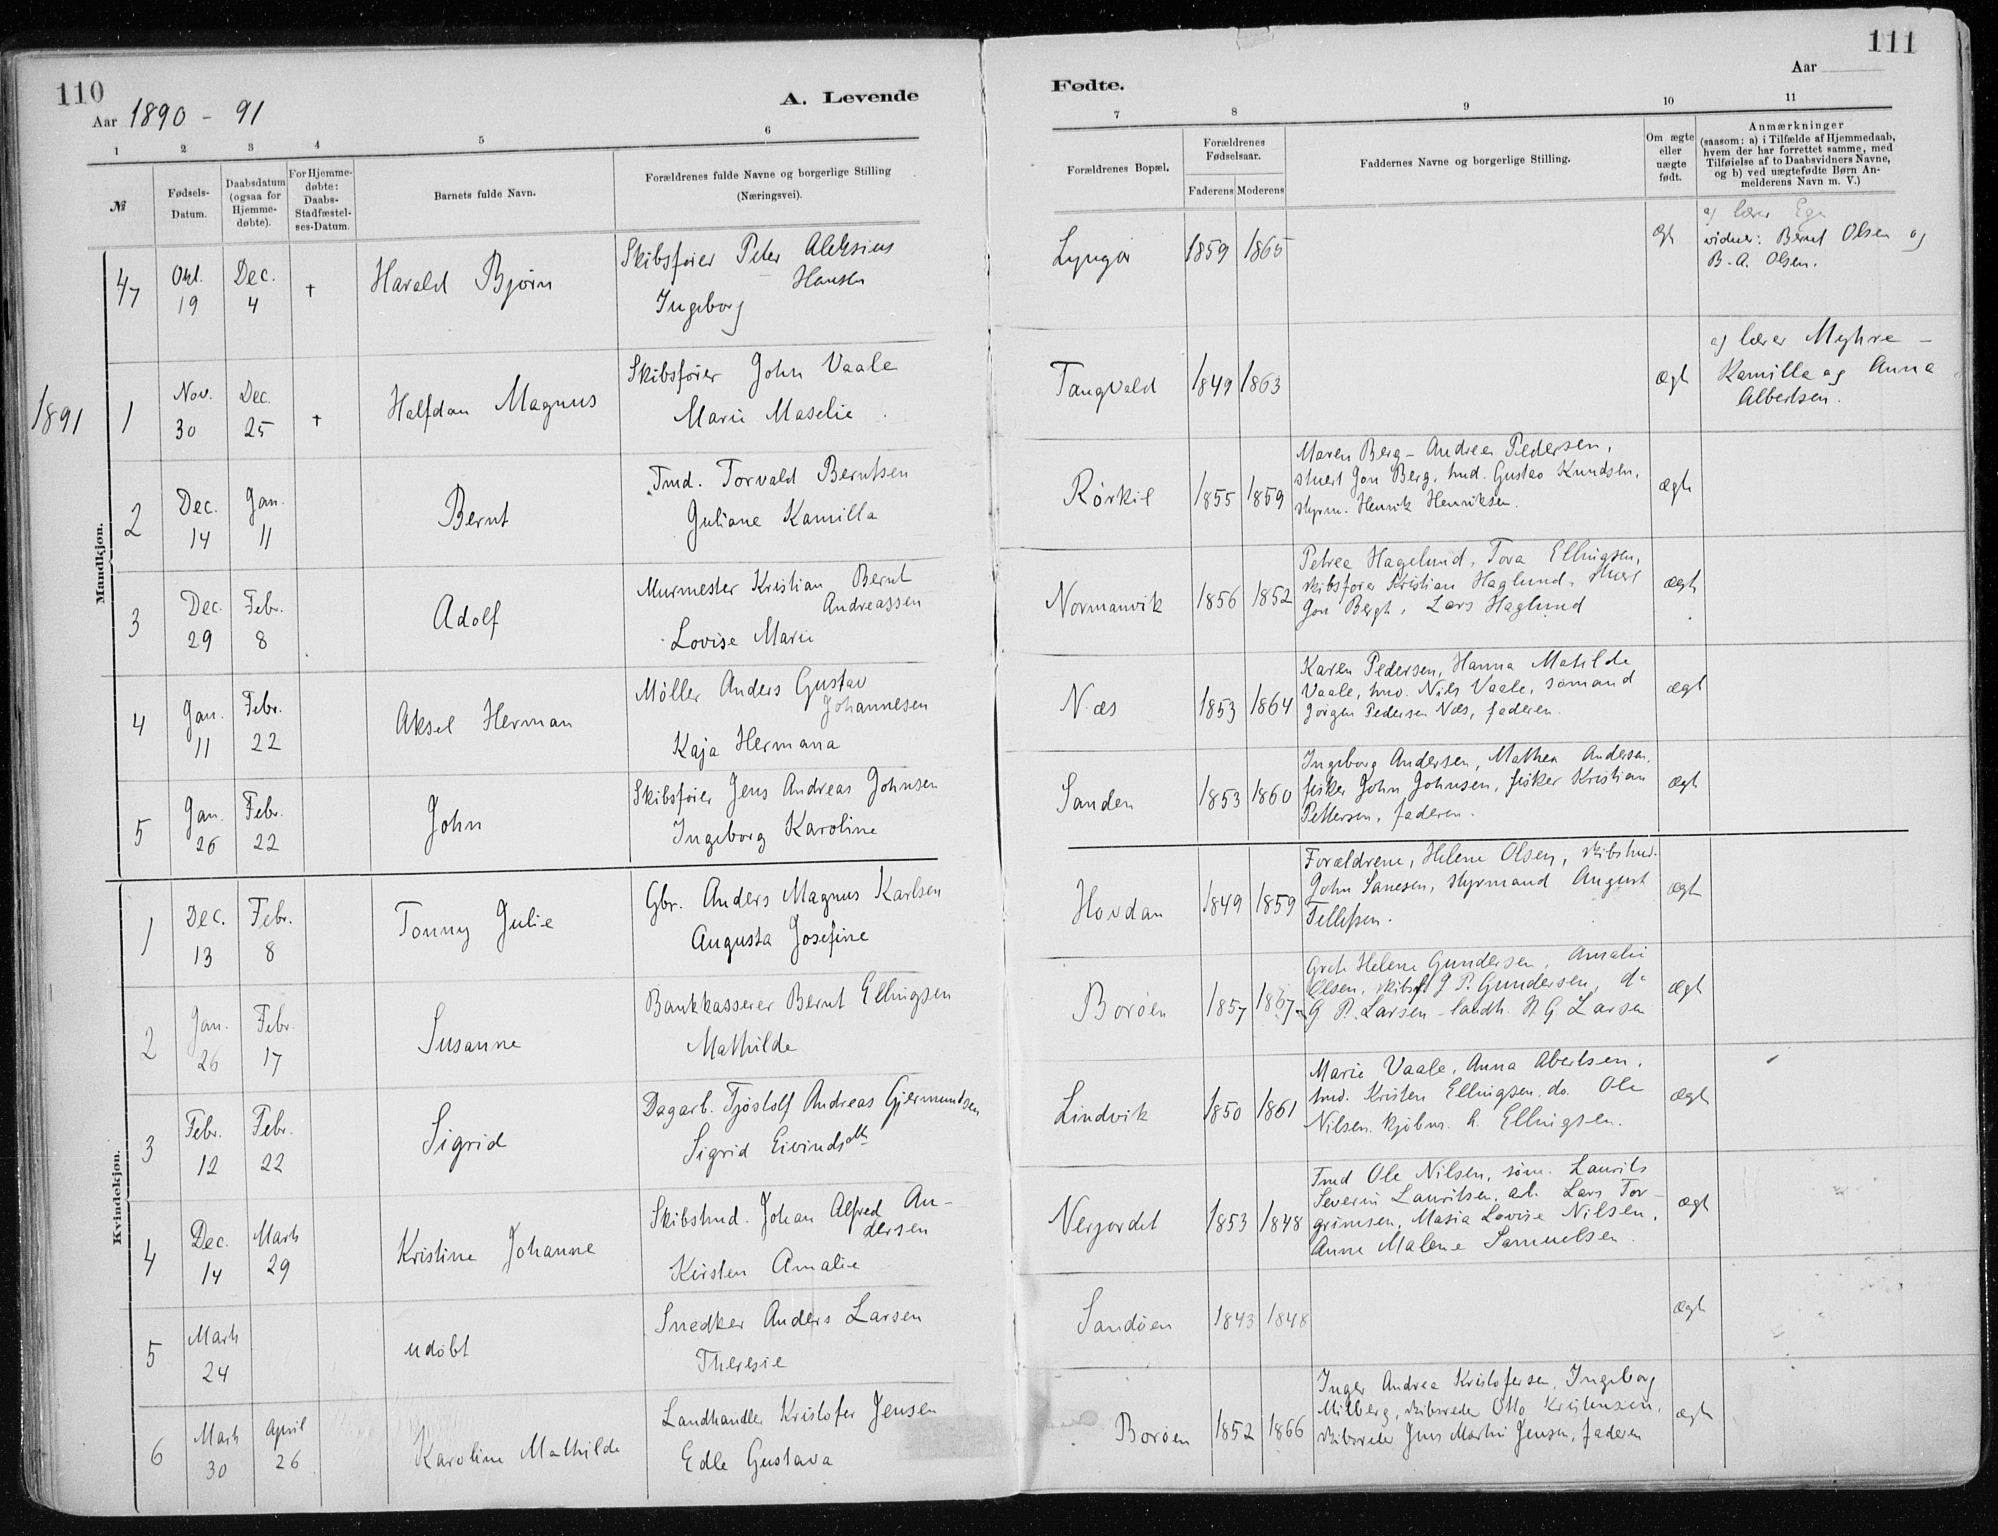 110
Aar 1890 - 91
A. Levende
1 2 3 4 5 6
№
Fødsels-Datum.
Daabsdatum (ogsaa for Hjemmedøbte).
For Hjemmedøbte: Daabs-Stadfæstelses-Datum.
Barnets fulde Navn.
Forældrenes fulde Navne og borgerlige Stilling
(Næringsvei).
Mandkjøn.
47 Okt. 19 Dec. 4 † Harald Bjørn
Skibsfører Peter Aleksius
Hansen
Ingeborg
1891
1 Nov. 30 Dec. 25 † Halfdan Magnus
Skibsfører John Vaale
Marie Maselie
2 Dec. 14 Jan. 11 Bernt
Tmd. Torvald Berntsen
Juliane Kamilla
3 Dec. 29 Febr. 8 Adolf
Murmester Kristian Bernt
Andreassen
Lovise Marie
4 Jan. 11 Febr. 22 Aksel Herman
Møller Anders Gustav
Johannesen
Kaja Hermana
5 Jan. 26 Febr. 22 John
Skibsfører Jens Andreas Johnsen
Ingeborg Karoline
Kvindekjøn.
1 Dec. 13 Febr. 8 Tonny Julie
Gbr. Anders Magnus Karlsen
Augusta Josefine
2 Jan. 26 Febr. 17 Susanne
Bankkasserer Bernt Ellingsen
Mathilde
3 Febr. 12 Febr. 22 Sigrid
Dagarb. Tjøstolf Andreas Gjermundsen
Sigrid Eivindsdtr
4 Dec. 14 Marts 29 Kristine Johanne
Skibstmd. Johan Alfred An-
dersen
Kirsten Amalie
5 Marts 24 udøbt
Snedker Anders Larsen
Theresie
6 Marts 30 April 26 Karoline Mathilde
Landhandler Kristofer Jensen
Edle Gustava
111
Aar
Fødte.
7 8 9 10 11
Forældrenes Bopæl.
Forældrenes Fødselsaar.
Faderens Moderens
Faddernes Navne og borgerlige Stilling.
Om ægte eller uægte født.
Anmærkninger
(saasom: a) i Tilfælde af Hjemmedaab,
hvem der har forrettet samme, med
Tilføielse af to Daabsvidners Navne,
og b) ved uægtefødte Børn An-
melderens Navn m. V.)
Lyngør 1859 1865 ægt
a) lærer
vidner: Bernt Olsen og
B. A. Olsen.
Tangvald 1849 1863 ægt
a) lærer Myhre -
Kamilla og Anna
Albertsen.
Rørkil 1855 1859
Maren Berg - Andrea Pedersen,
stuert Jon Berg, tmd. Gustav Knudsen,
styrm. Henrik Henriksen.
ægt
Normanvik 1856 1852
Petrea Hagelund, Tora Ellingsen,
skibsfører Kristian Haglund, stuert
Jon Bergt, Lars Haglund
ægt
Næs 1853 1864
Karen Pedersen, Hanna Matilde
Vaale, Nils Vaale, sømand
Jørgen Pedersen Næs, faderen.
ægt
Sanden 1853 1860
Ingeborg Andersen, Mathea Andersen,
fisker John Johnsen, fisker Kristian
Pettersen, faderen.
ægt
Hovdan 1849 1859
Forældrene, Helene Olsen, skibstmd.
John Sanesen, styrmand August
Tellefsen.
ægt
Borøen 1857 1867
Grete Helene Gundersen, Amalie
Olsen, skibsf. J P. Gundersen, do
G P. Larsen - landh. H. G. Larsen
ægt
Lindvik 1850 1861
Marie Vaale, Anna Abertsen,
tmd. Kristen Ellingsen. do. Ole
Nilsen. kjøbm. h. Ellingsen.
ægt
Nerjordet 1853 1848
Tmd Ole Nilsen, søm. Laurits
Severin Lauritsen, arb. Lars Tor-
grimsen, Masia Lovise Nilsen,
Anne Malene Samuelsen.
ægt
Sandøen 1843 1848 ægt
Borøen 1852 1866
Inger Andrea Kristofersen, Ingeborg
Milberg, skibsreder Otto Kristensen,
skibsreder Jens Martin Jensen, faderen
ægt